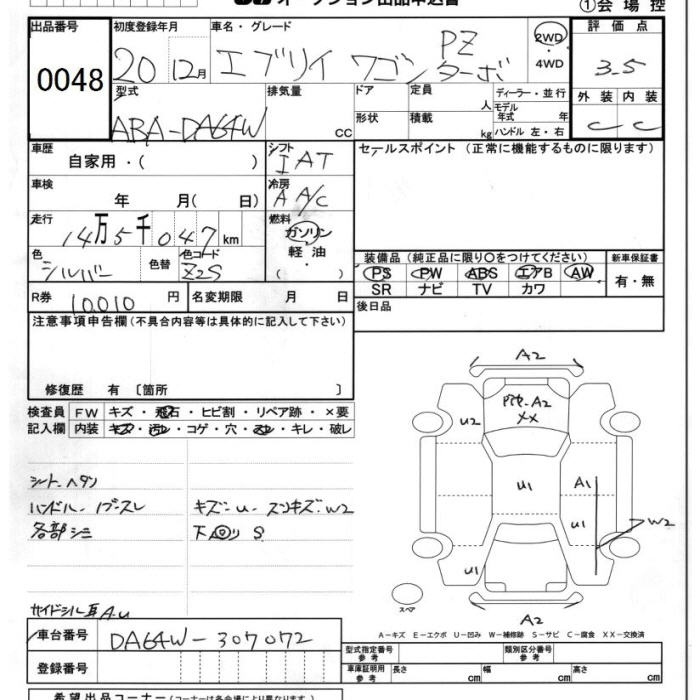 オークション出品申込書
①会場控
出品番号 初度登録年月 車名・グレード 評価点
0048 20 12月 エブリイ ワゴン PZ ターボ 2WD ・ 4WD 3.5
型式 排気量 ドア 定員 ディーラー・並行 外装 内装
ABA-DA64W CC 形状 積載 人 kg モデル年式 年 ハンドル 左・右 C C
車歴 自家用・( ) シフト IAT セールスポイント (正常に機能するものに限ります)
車検 年 月( 日) 冷房 A A/C
走行 14万5千047km 燃料 ガソリン
色 シルバー 色替 色コード Z2S 軽油 ( ) 装備品 (純正品に限り○をつけてください) 新車保証書
PS PW ABS エアB AW 有・無
SR ナビ TV カワ
R券 10,010円 名変期限 月 日 後日品
注意事項申告欄 (不具合内容等は具体的に記入して下さい)
修復歴 有 〔箇所 〕
検査員 FW キズ・飛石・ヒビ割・リペア跡・×要
記入欄 内装 キズ・汚レ・コゲ・穴・スレ・キレ・破レ
シートヘタリ
ハンドル・ノブスレ キズ・U・スンキズ・W2
各部シミ 下回り S
サイドシル耳A.U
A2
A2
XX
U2
U1
A1
U1
W2
U1
U1
スペア
A2
A-キズ E-エクボ U-凹み W-補修跡 S-サビ C-腐食 XX-交換済
車台番号 DA64W-307072
登録番号
型式指定番号 参考 類別区分番号 参考
車庫証明用 参考 長さ cm 幅 cm 高さ cm
希望出品コーナー (コーナーは各会場により異なります。)